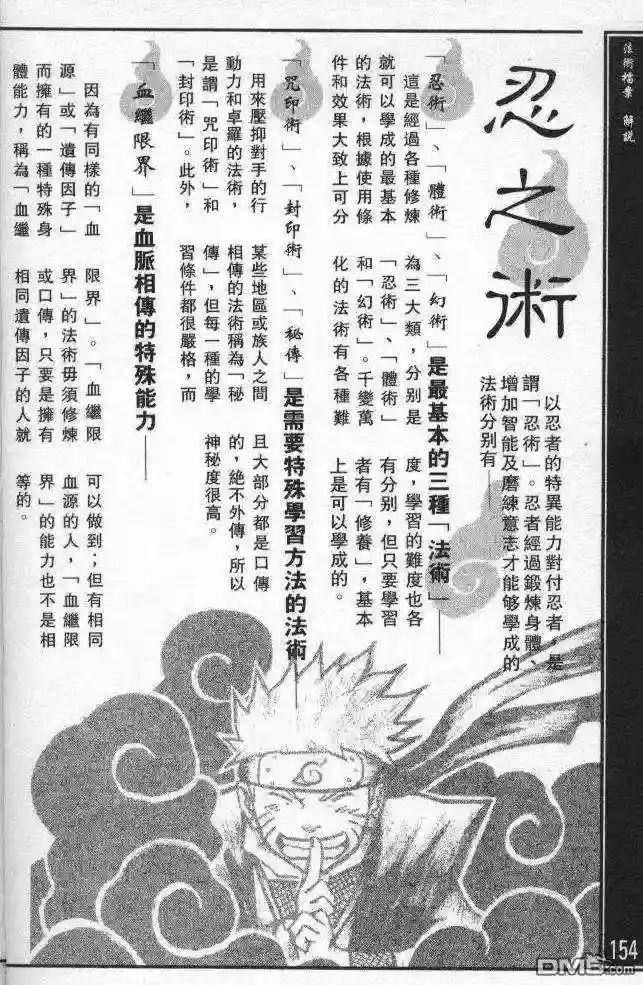 法術檔案 解說
忍之術
以忍者的特異能力對付忍者，是
謂「忍術」。忍者經過鍛煉身體、
增加智能及磨練意志才能够學成的
法術分別有——
「忍術」、「體術」、「幻術」是最基本的三種「法術」——
這是經過各種修煉
就可以學成的最基本
的法術，根據使用條
件和效果大致上可分
為三大類，分別是
「忍術」、「體術」
和「幻術」。千變萬
化的法術有各種難
度，學習的難度也各
有分別，但只要學習
者有「修養」，基本
上是可以學成的。
「咒印術」、「封印術」、「秘傳」是需要特殊學習方法的法術——
用來壓抑對手的行
動力和卓羅的法術，
是謂「咒印術」和
「封印術」。此外，
某些地區或族人之間
相傳的法術稱為「秘
傳」，但每一種的學
習條件都很嚴格，而
且大部分都是口傳
的，絕不外傳，所以
神秘度很高。
「血繼限界」是血脈相傳的特殊能力——
因為有同樣的「血
源」或「遺傳因子」
而擁有的一種特殊身
體能力，稱為「血繼
限界」。「血繼限
界」的法術毋須修煉
或口傳，只要是擁有
相同遺傳因子的人就
可以做到；但有相同
血源的人，「血繼限
界」的能力也不是相
等的。
154
DM5.com